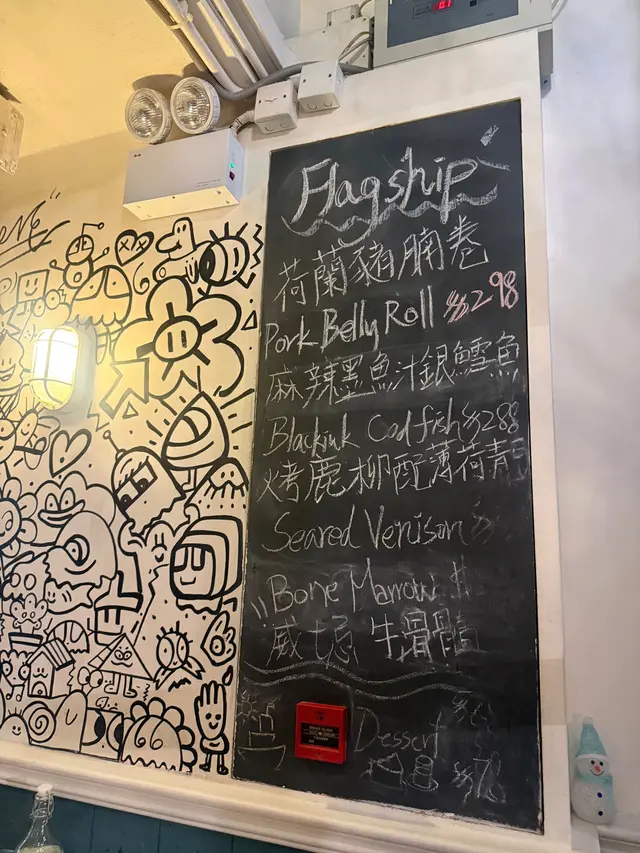 Flagship
荷蘭豬腩卷
Pork Belly Roll $298
麻辣墨魚汁銀鱈魚
Blackink Codfish $288
烤鹿柳配薄荷青
Seared Venison
Bone Marrow $
威士忌 牛骨髓
Dessert
$78